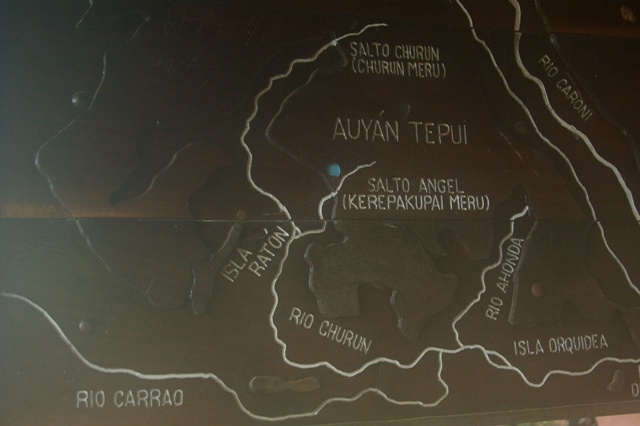 SALTO CHURUN
(CHURUN MERU)
RIO CARONI
AUYÁN TEPUI
SALTO ANGEL
(KEREPAKUPAI MERU)
ISLA
RATÓN
RIO AHONDA
RIO CHURUN
ISLA ORQUIDEA
RIO CARRAO